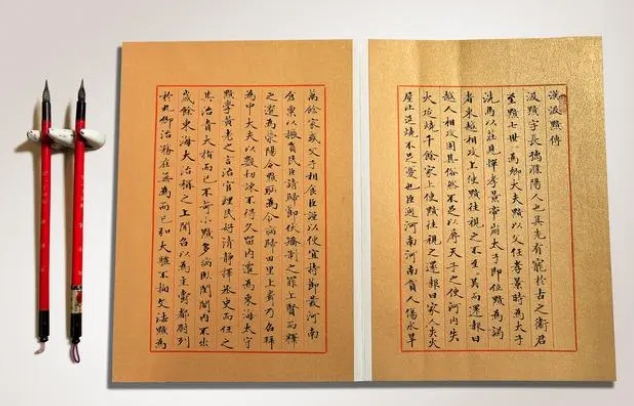 漢汲黯傳
汲黯字長孺濮陽人也其先有寵於古之衛君
至黯七世為卿大夫黯以父任孝景時為太子
洗馬以莊見憚孝景帝崩太子即位黯為謁
者東越相攻上使黯往視之不至吳而還報曰
越人相攻固其俗然不足以辱天子之使河內失
火延燒千餘家上使黯往視之還報曰家人失火
屋比延燒不足憂也臣過河南河南貧人傷水旱
萬餘家或父子相食臣謹以便宜持節發河南
倉粟以振貧民臣請歸節伏矯制之罪上賢而釋
之遷為滎陽令黯恥為令病歸田里上聞乃召拜
為中大夫以數切諫不得久留內遷為東海太守
黯學黃老之言治官理民好清靜擇丞史而任之
其治責大指而已不苛小黯多病臥閨閤內不出
歲餘東海大治稱之上聞召以為主爵都尉列
於九卿治務在無為而已弘大體不拘文法黯為